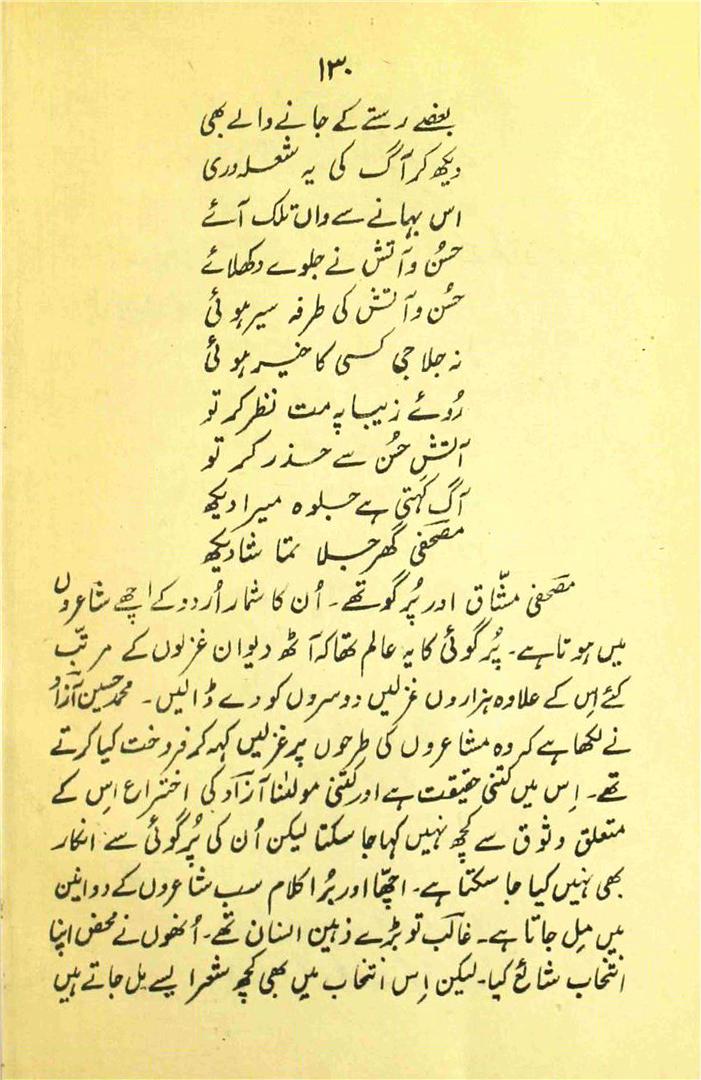 ۱۳۰
بعضے رستے کے جانے والے بھی
دیکھ کر آگ کی یہ شعلہ وری
اس بہانے سے واں تلک آئے
حسُن و آتش نے جلوے دکھلائے
حسُن و آتش کی طرفہ سیر ہوئی
نہ جلا جی کسی کا خیر ہوئی
رُوئے زیبا پہ مت نظر کر تو
آتشِ حسُن سے حذر کر تو
آگ کہتی ہے جلوہ میرا دیکھ
مصحفی گھر جلا تماشا دیکھ
مصحفی مشّاق اور پُر گو تھے۔ اُن کا شمار اُردو کے اچھے شاعروں
میں ہوتا ہے۔ پُر گوئی کا یہ عالم تھا کہ آٹھ دیوان غزلوں کے مرتّب
کئے اِس کے علاوہ ہزاروں غزلیں دوسروں کو دے ڈالیں۔ محمد حسین آزاد
نے لکھا ہے کہ وہ مشاعروں کی طرحوں پر غزلیں کہہ کر فروخت کیا کرتے
تھے۔ اِس میں کتنی حقیقت ہے اور کتنی مولٰنا آزاد کی اختراع اِس کے
متعلق وثوق سے کچھ نہیں کہا جا سکتا لیکن اُن کی پُر گوئی سے انکار
بھی نہیں کیا جا سکتا ہے۔ اچھّا اور بُرا کلام سب شاعروں کے دواوین
میں مِل جاتا ہے۔ غالب تو بڑے ذہین انسان تھے۔ اُنھوں نے محض اپنا
انتخاب شائع کیا۔ لیکن اِس انتخاب میں بھی کچھ شعر ایسے مِل جاتے ہیں